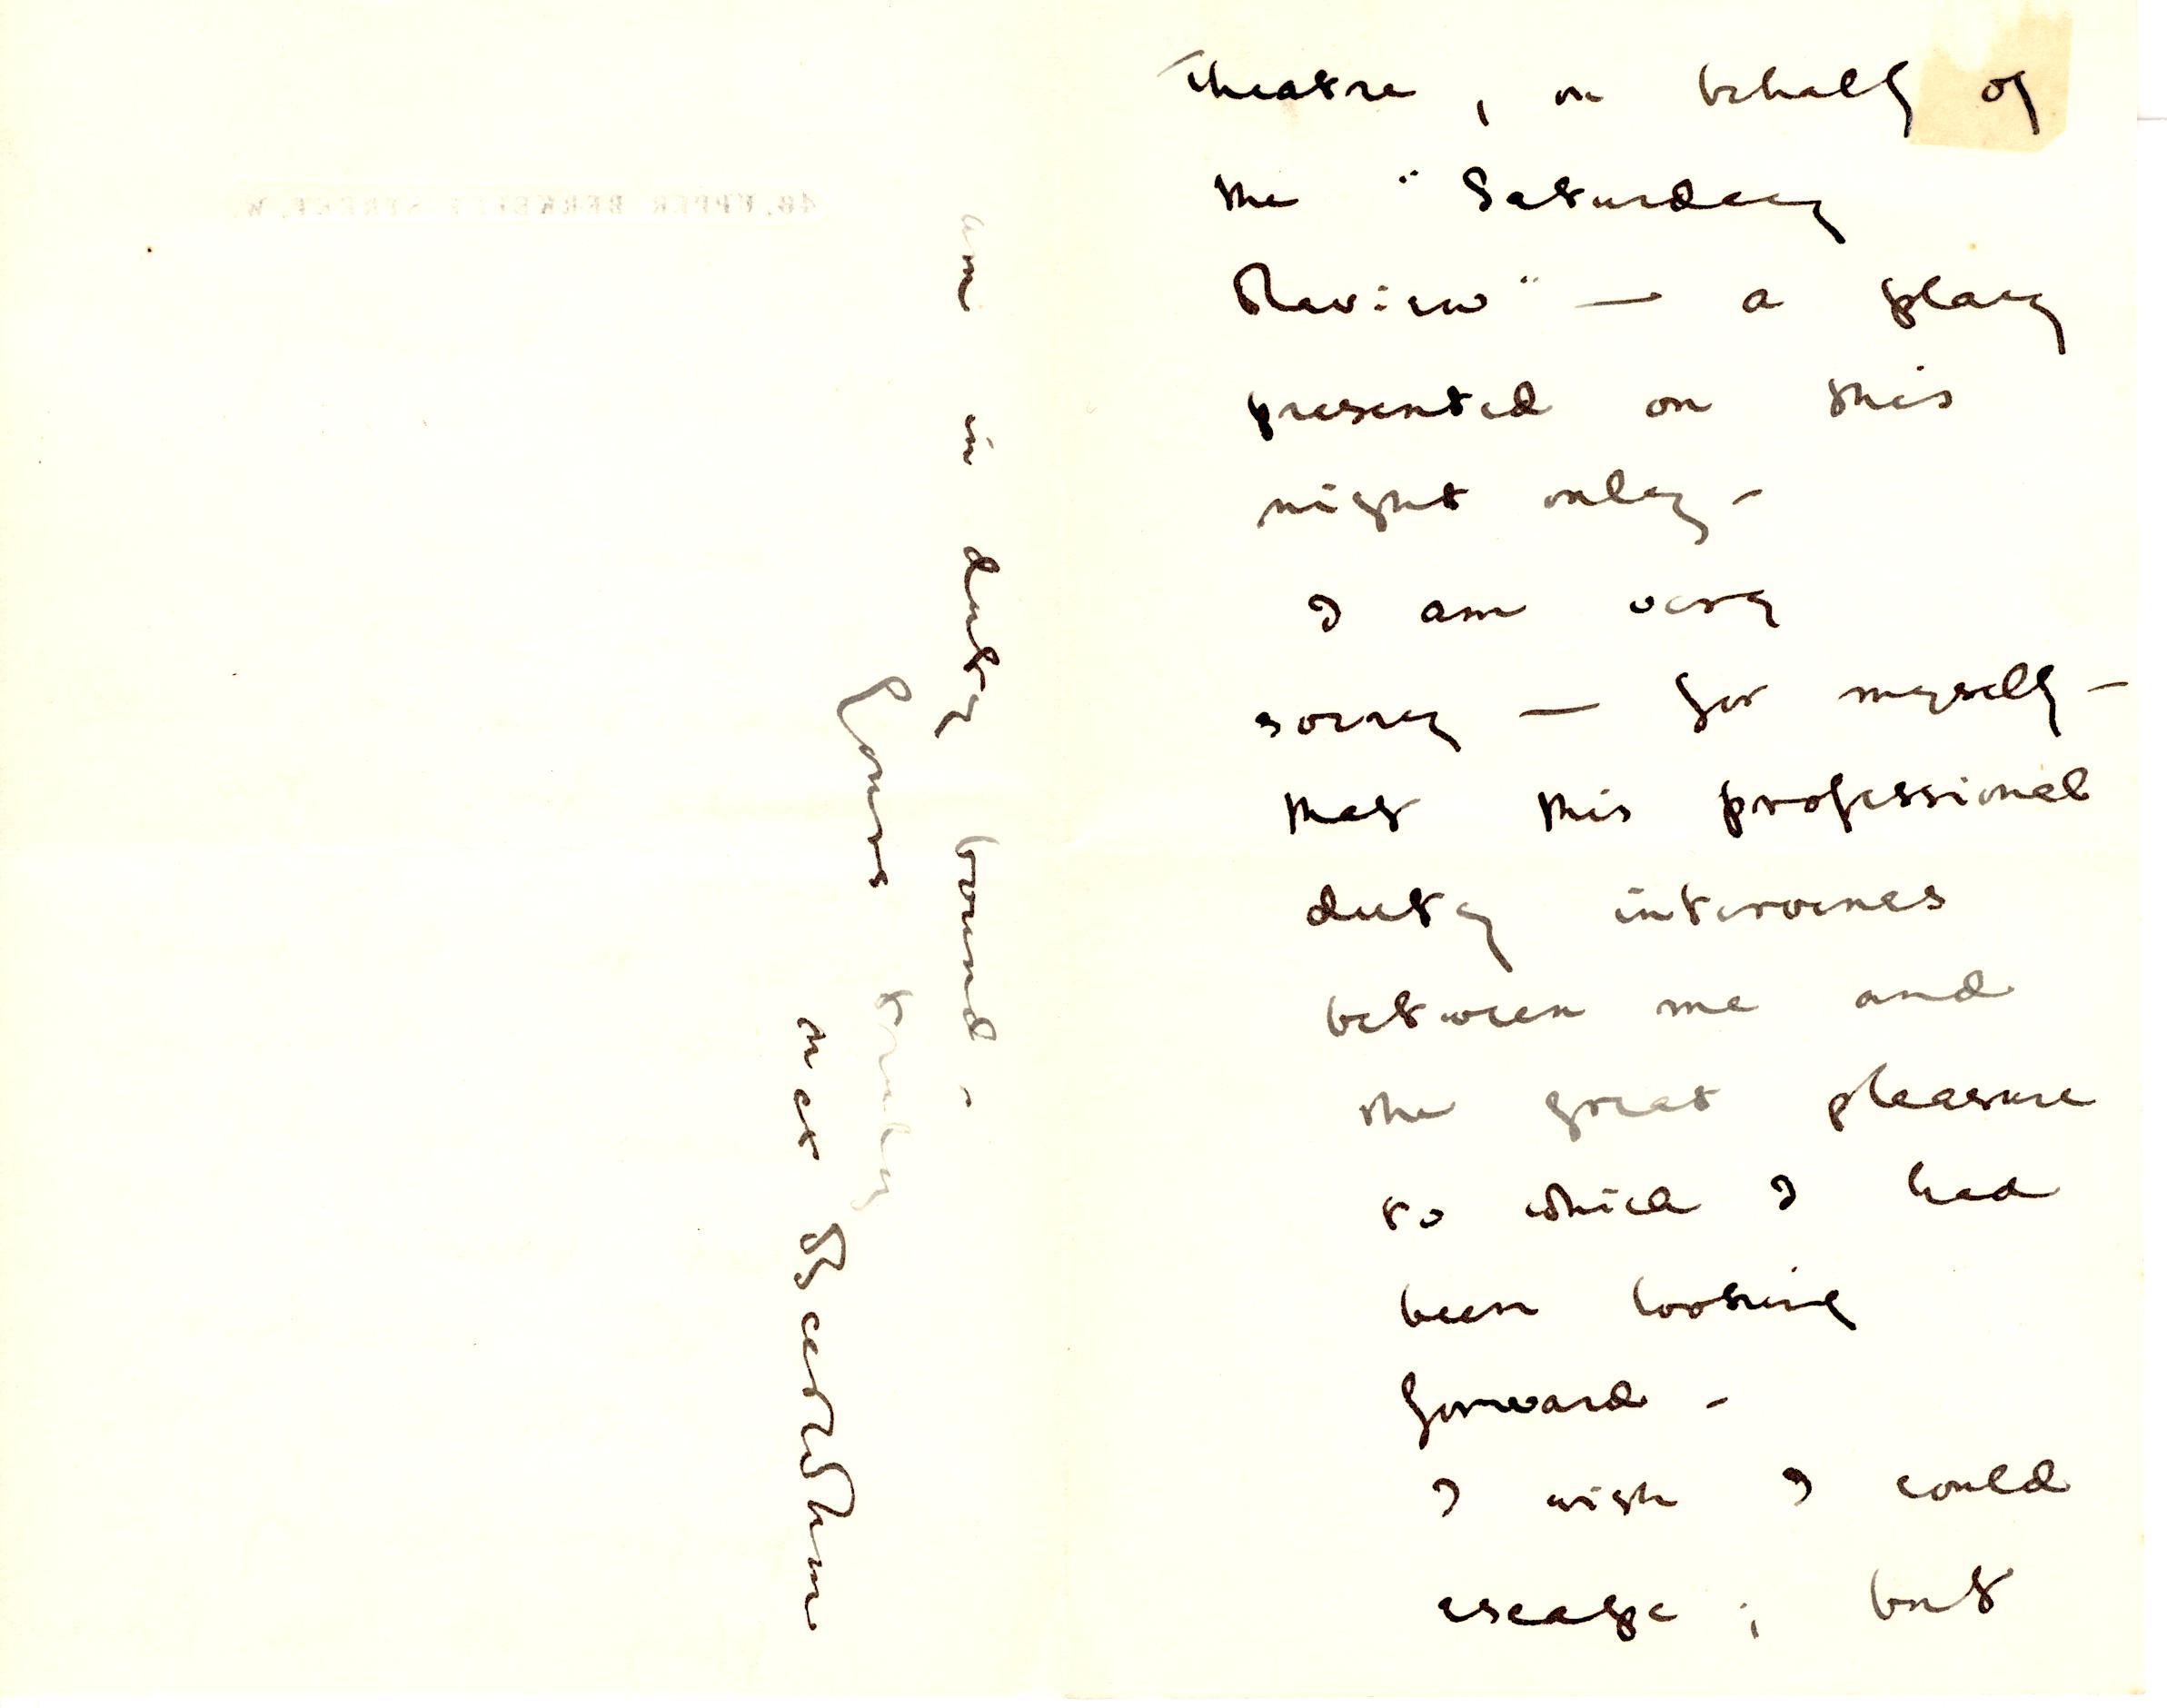 theatre, on behalf of
the "Saturday
Review" — a play
presented on this
night only -
I am very
sorry — for myself -
that this professional
duty intervenes
between me and
the great pleasure
to which I had
been looking
forward -
I wish I could
escape; but
am in duty bound -
Yours truly
Max Beerbohm
48, UPPER BERKELEY STREET, W.